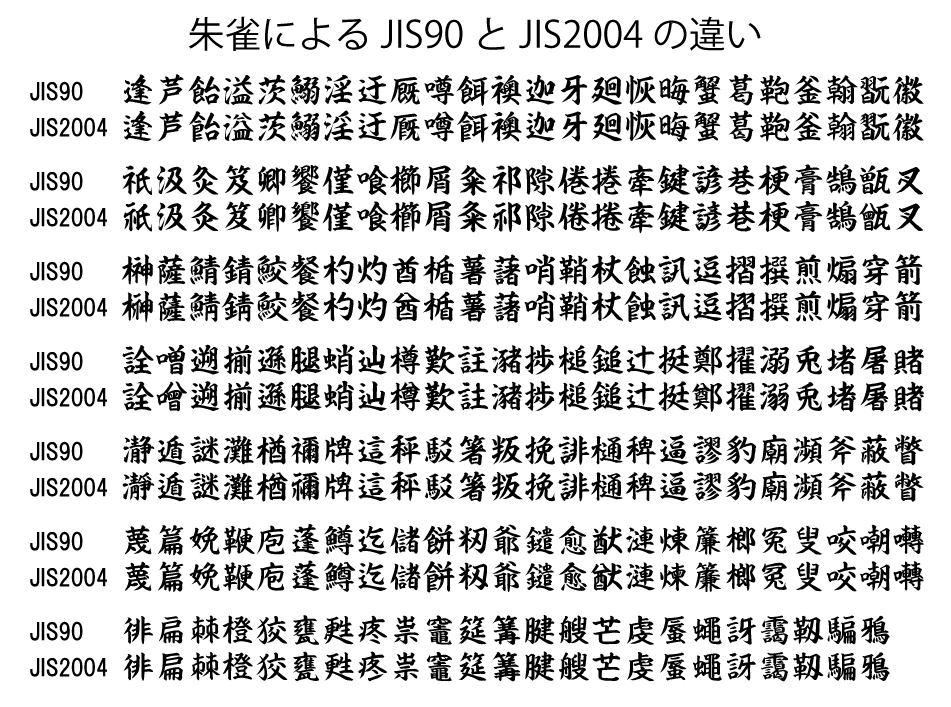 朱雀による JIS90 と JIS2004 の違い
JIS90 逢芦飴溢茨鰯淫迂厩噂餌襖迦牙廻恢晦蟹葛鞄釜翰翫徽
JIS2004 逢芦飴溢茨鰯淫迂厩噂餌襖迦牙廻恢晦蟹葛鞄釜翰翫徽
JIS90 祇汲灸笈卿饗僅喰櫛屑粂祁隙倦捲牽鍵諺巷梗膏鵠甑叉
JIS2004 祇汲灸笈卿饗僅喰櫛屑粂祁隙倦捲牽鍵諺巷梗膏鵠甑叉
JIS90 榊薩鯖錆鮫餐杓灼酋楯薯藷哨鞘杖蝕訊逗摺撰煎煽穿箭
JIS2004 榊薩鯖錆鮫餐杓灼酋楯薯藷哨鞘杖蝕訊逗摺撰煎煽穿箭
JIS90 詮噌遡揃遜腿蛸辿樽歎註瀦捗槌鎚辻挺鄭擢溺兎堵屠賭
JIS2004 詮噌遡揃遜腿蛸辿樽歎註瀦捗槌鎚辻挺鄭擢溺兎堵屠賭
JIS90 瀞遁謎灘楢禰牌這秤駁箸叛挽誹樋稗逼謬豹廟瀕斧蔽瞥
JIS2004 瀞遁謎灘楢禰牌這秤駁箸叛挽誹樋稗逼謬豹廟瀕斧蔽瞥
JIS90 蔑篇娩鞭庖蓬鱒迄儲餅籾爺鑓愈猷漣煉簾榔冤叟咬嘲囀
JIS2004 蔑篇娩鞭庖蓬鱒迄儲餅籾爺鑓愈猷漣煉簾榔冤叟咬嘲囀
JIS90 徘扁棘橙狡甕甦疼祟竈筵篝腱艘芒虔蜃蠅訝靄靱騙鴉
JIS2004 徘扁棘橙狡甕甦疼祟竈筵篝腱艘芒虔蜃蠅訝靄靱騙鴉